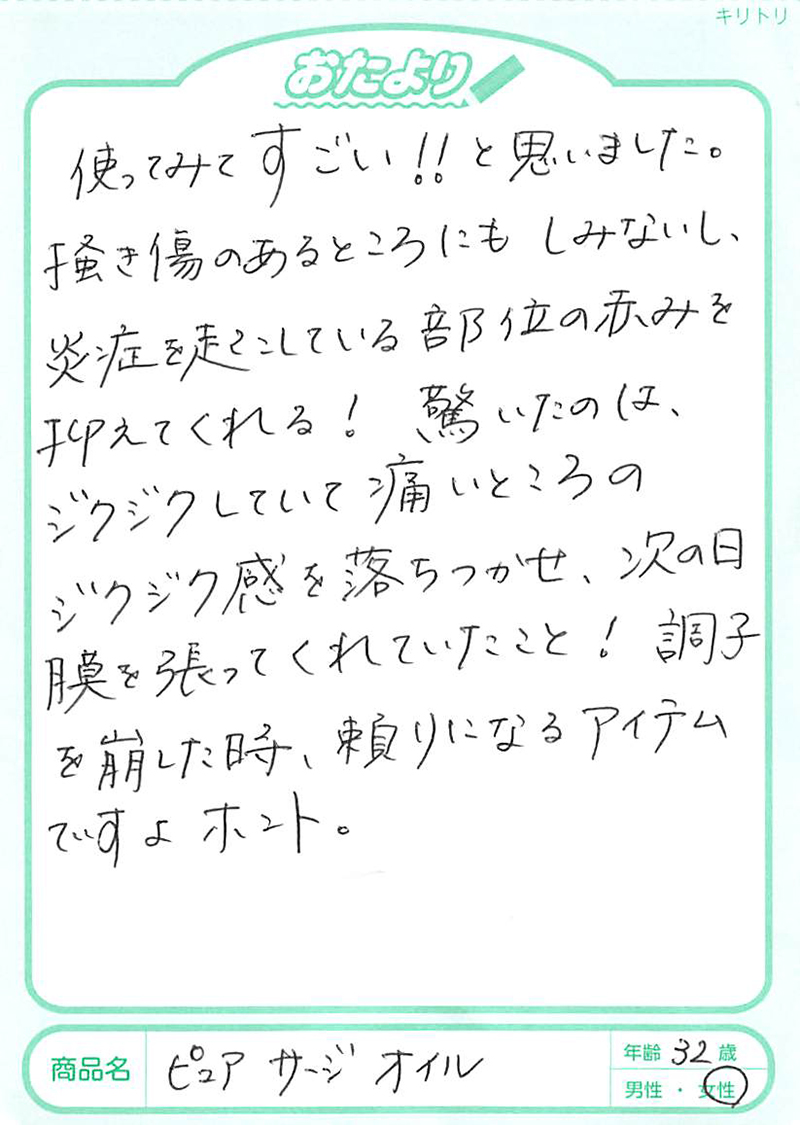 キリトリ
おたより
使ってみてすごい!!と思いました。
掻き傷のあるところにも しみないし、
炎症を起こしている部位の赤みを
抑えてくれる! 驚いたのは、
ジクジクしていて痛いところの
ジクジク感を落ちつかせ、次の日
膜を張ってくれていたこと! 調子
を崩した時、頼りになるアイテム
ですよ ホント。
商品名 ピュア サージ オイル 年齢 32 歳
男性 ・ 女性